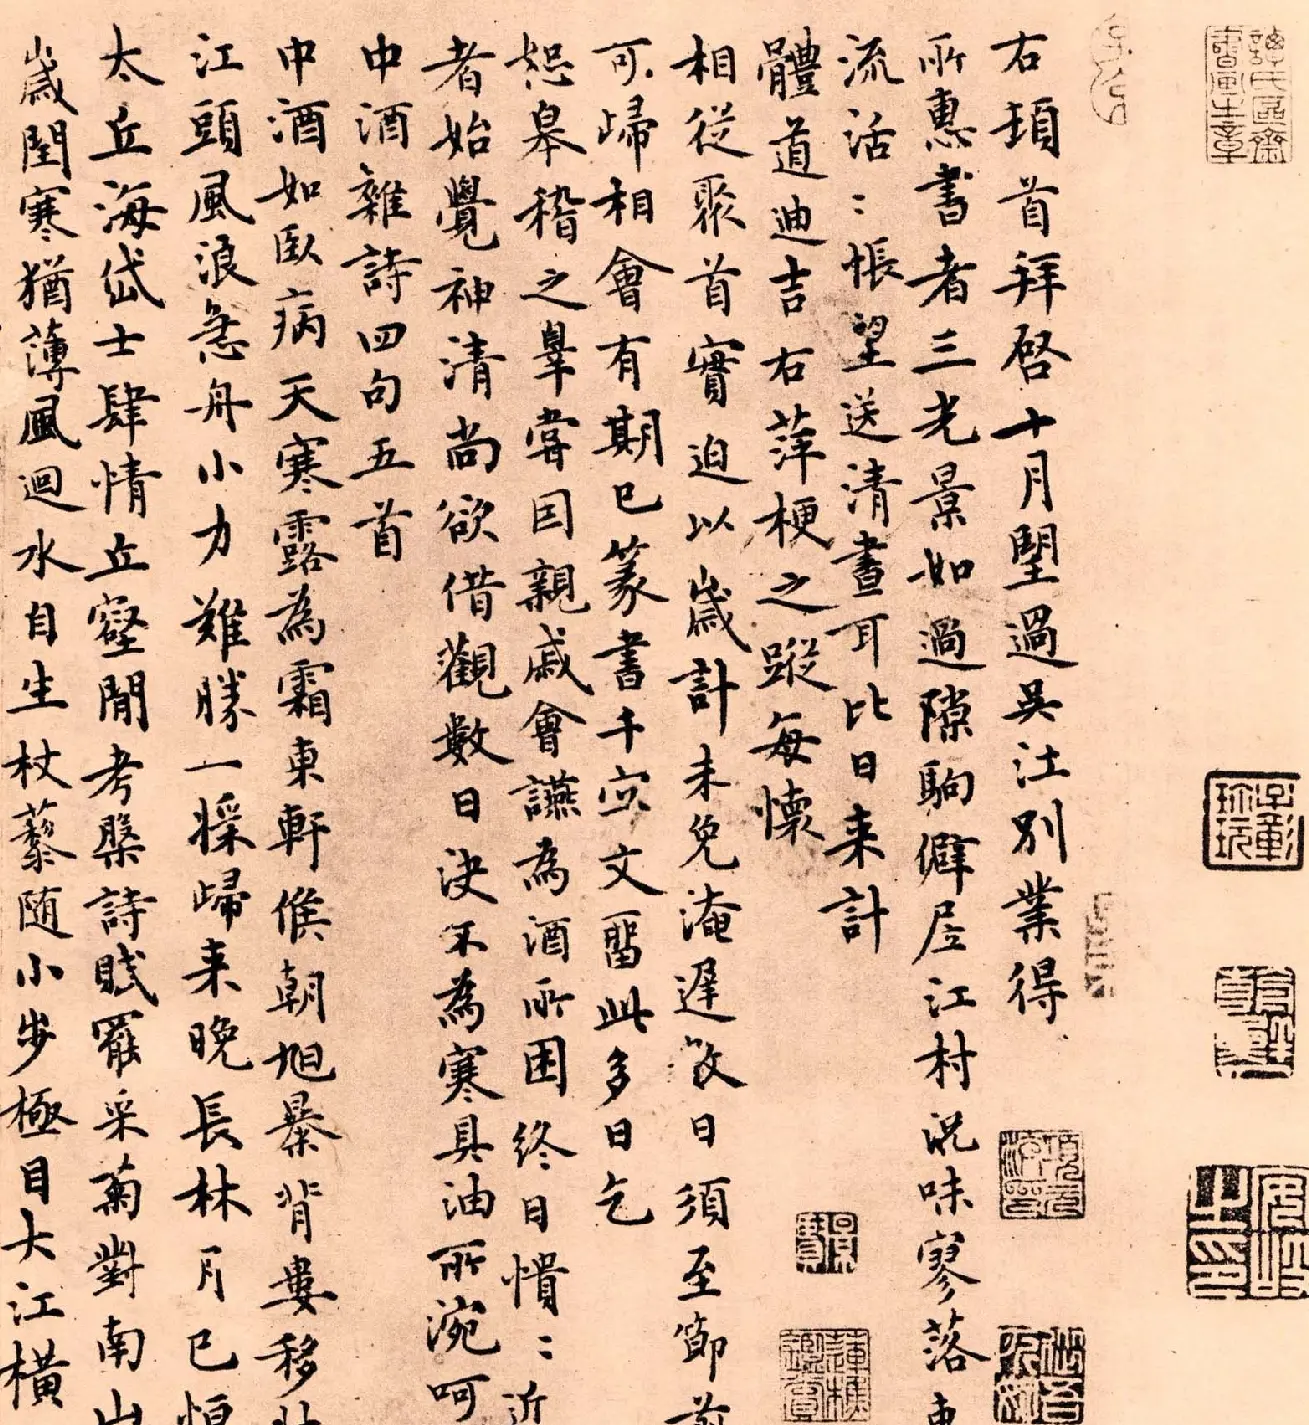 右頊首拜啓十月朢過吳江別業得
所惠書者三光景如過隙駒僻居江村況味寥落
流活〻悵望送清晝耳比日来計
體道迪吉右萍梗之蹤每懷
相從聚首實迫以歲計未免淹遲改日須至節前
可歸相會有期已篆書千字文畱此多日乞
恕皋稽之辠嘗因親戚會讌為酒所困終日憒〻近
者始覺神清尚欲借觀數日決不為寒具油所涴呵
中酒雜詩四句五首
中酒如臥病天寒露為霜東軒候朝旭暴背婁移
江頭風浪急舟小力難勝一㨾歸来晚長林月已恒
太丘海岱士肆情丘壑閒考槃詩賦罷采菊對南山
歲閏寒猶薄風迴水自生杖藜随小步極目大江橫